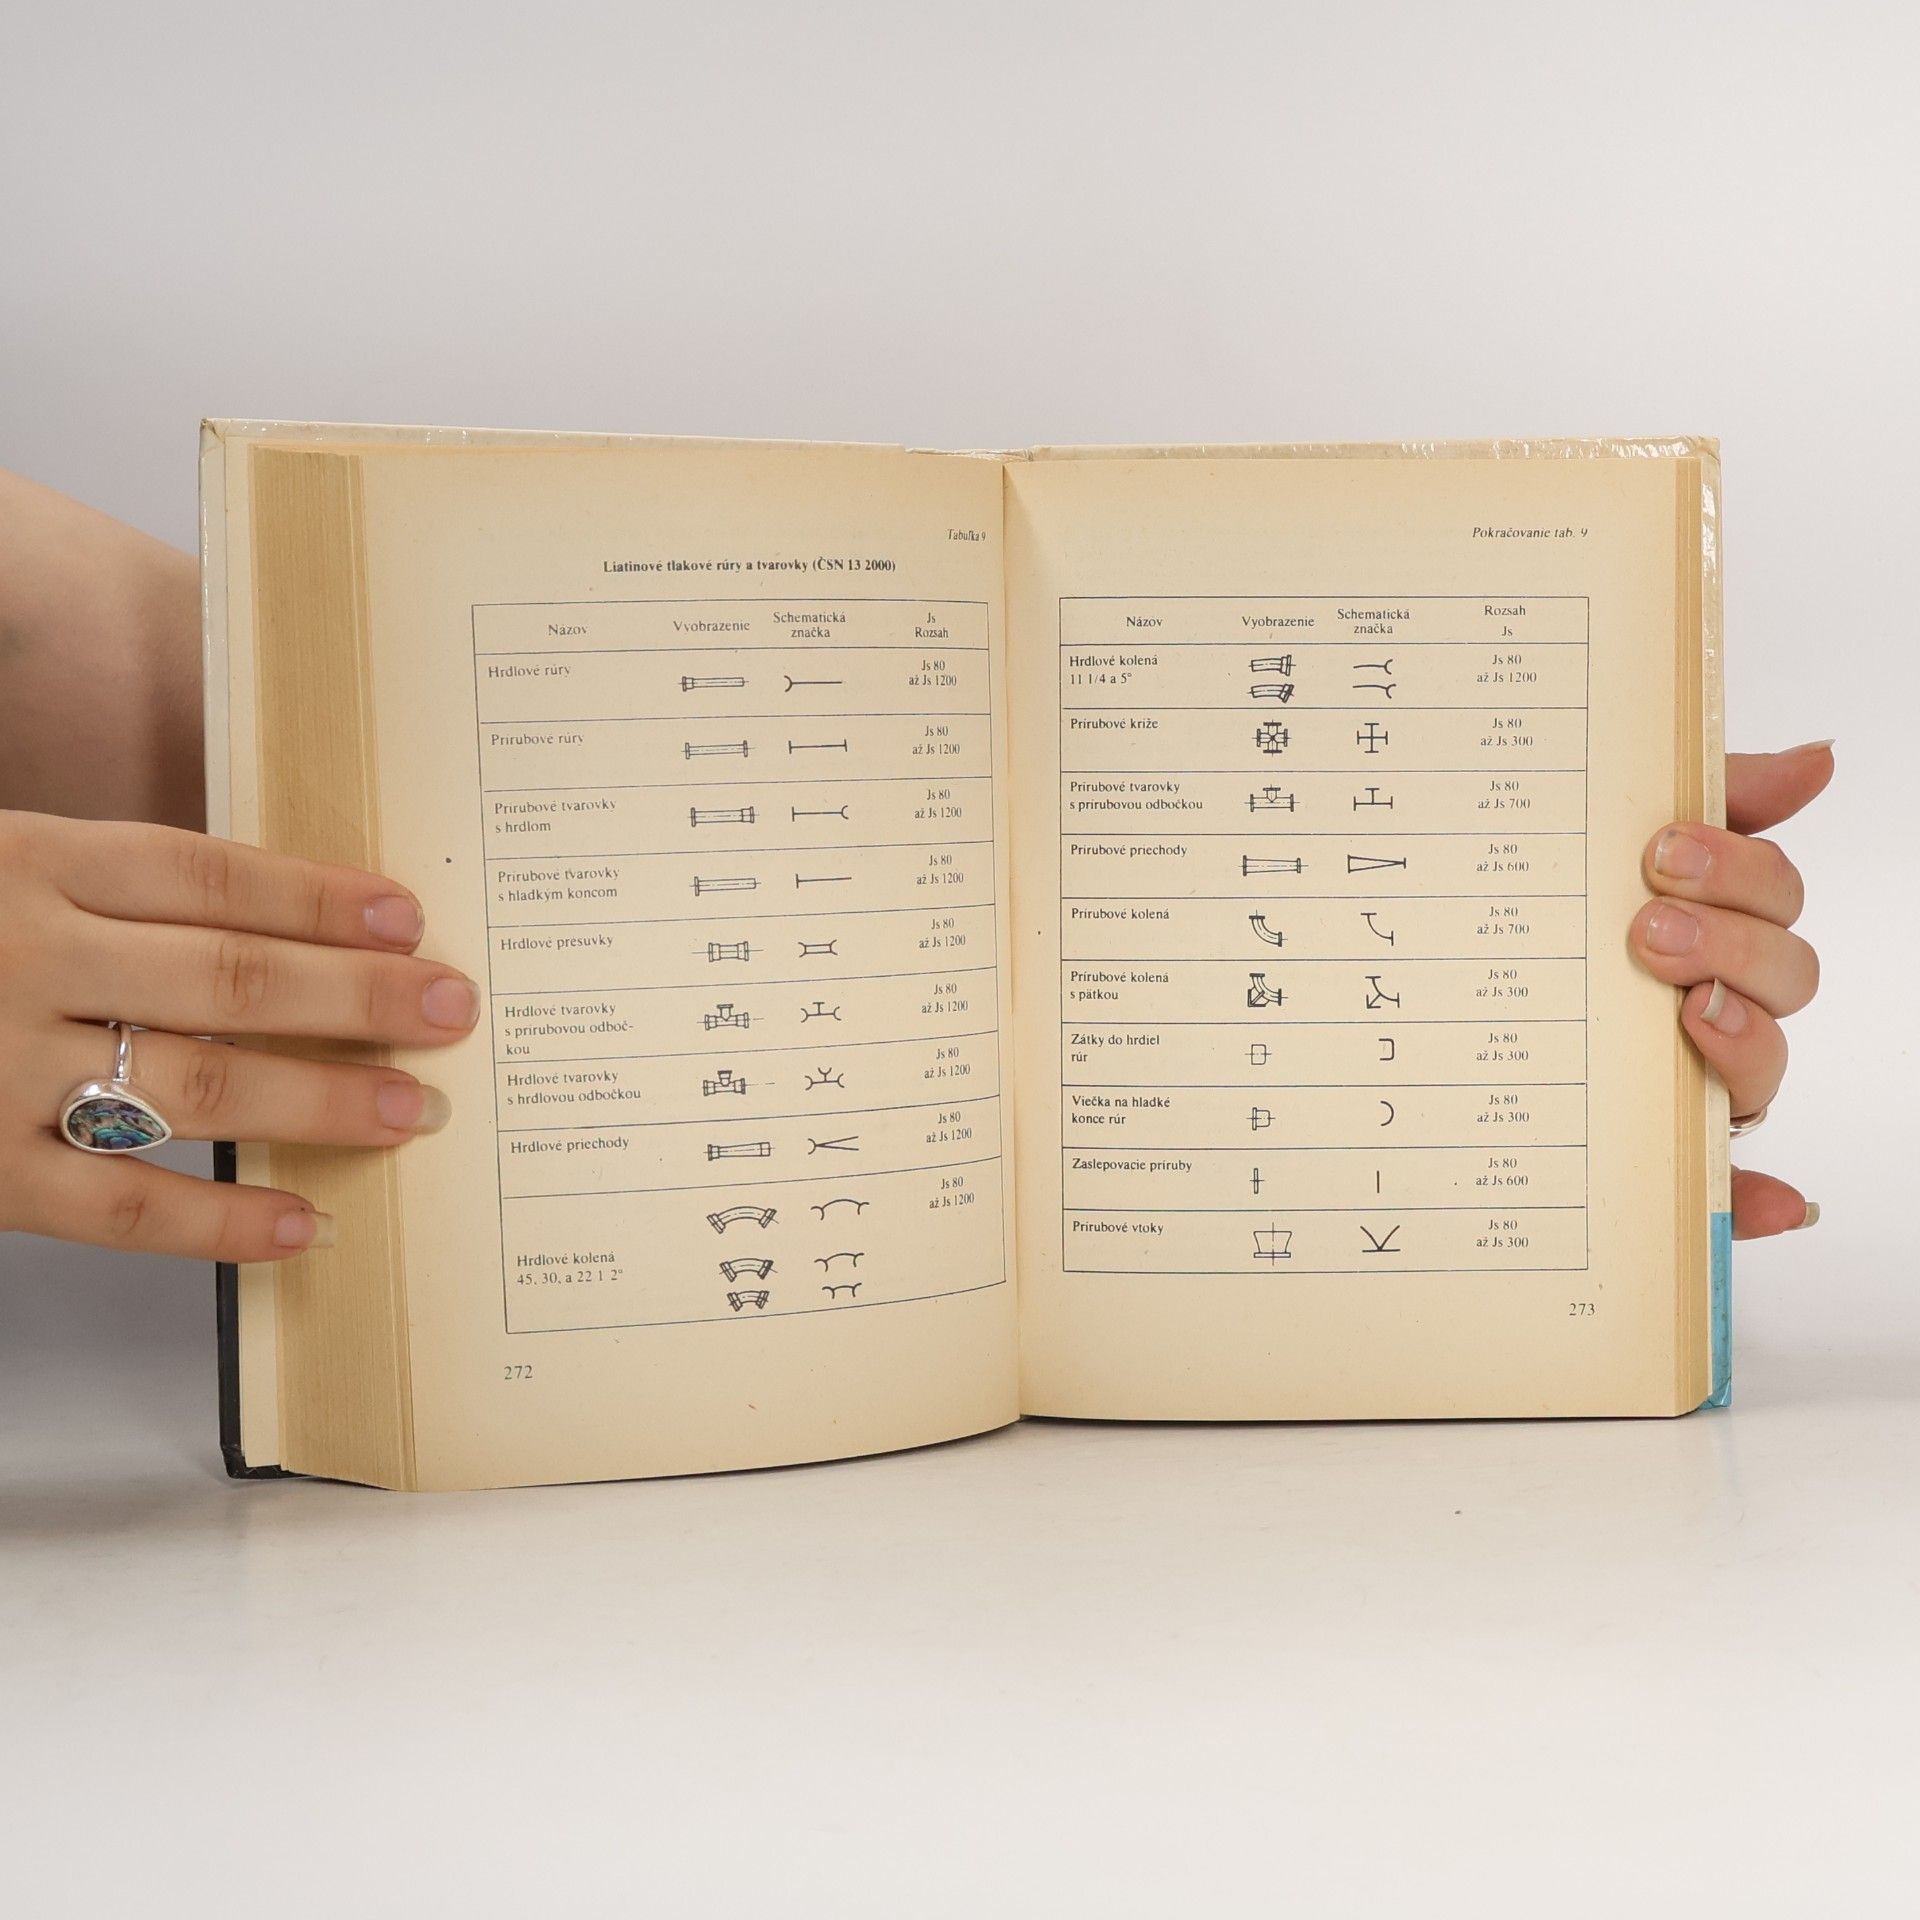 Tabuľka 9
Liatinové tlakové rúry a tvarovky (ČSN 13 2000)
Názov Vyobrazenie Schematická značka Js Rozsah
Hrdlové rúry Js 80
až Js 1200
Prírubové rúry Js 80
až Js 1200
Prírubové tvarovky Js 80
s hrdlom až Js 1200
Prírubové tvarovky Js 80
s hladkým koncom až Js 1200
Hrdlové presuvky Js 80
až Js 1200
Hrdlové tvarovky Js 80
s prírubovou odboč- až Js 1200
kou
Hrdlové tvarovky Js 80
s hrdlovou odbočkou až Js 1200
Hrdlové priechody Js 80
až Js 1200
Js 80
až Js 1200
Hrdlové kolená
45, 30, a 22 1 2°
272
Pokračovanie tab. 9
Názov Vyobrazenie Schematická značka Rozsah Js
Hrdlové kolená Js 80
11 1/4 a 5° až Js 1200
Prírubové kríže Js 80
až Js 300
Prírubové tvarovky Js 80
s prírubovou odbočkou až Js 700
Prírubové priechody Js 80
až Js 600
Prírubové kolená Js 80
až Js 700
Prírubové kolená Js 80
s pätkou až Js 300
Zátky do hrdiel Js 80
rúr až Js 300
Viečka na hladké Js 80
konce rúr až Js 300
Zaslepovacie príruby Js 80
až Js 600
Prírubové vtoky Js 80
až Js 300
273